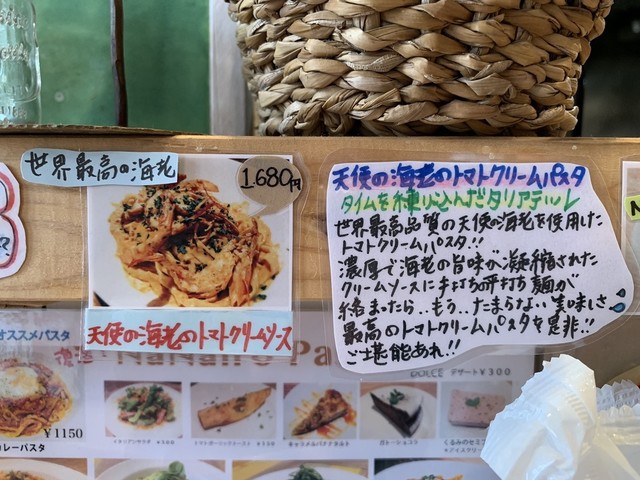 世界最高の海老
1.680円
天使の海老のトマトクリームソース
天使の海老のトマトクリームパスタ
タイムを練り込んだタリアテーレ
世界最高品質の天使の海老を使用した
トマトクリームパスタ!!
濃厚で海老の旨味が凝縮された
クリームソースに手打ち平打ち麺が
絡まったら‥もう‥たまらない美味しさ
最高のトマトクリームパスタを是非!!
ご堪能あれ!!
オススメパスタ
¥1150
DOLCE デザート¥300
イタリアンサラダ
キャラメルバナナタルト
ガトーショコラ